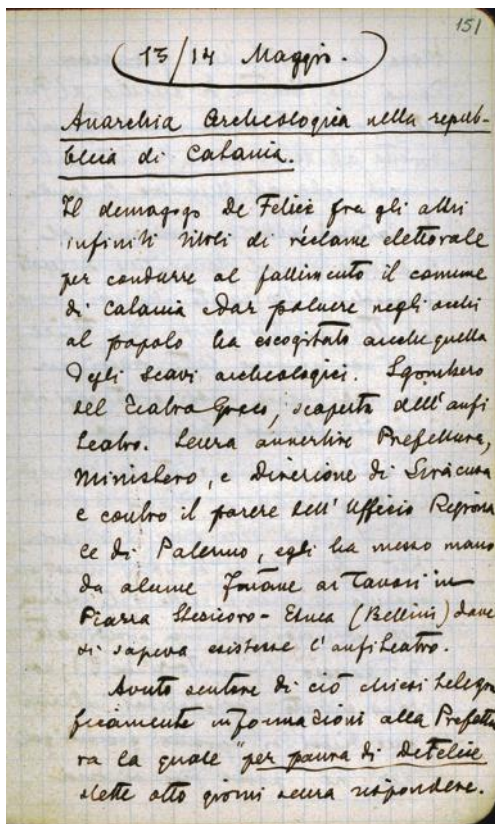 151
13/14 Maggio.
Anarchia Archeologica nella repub-
blica di Catania.
Il demagogo De Felice fra gli altri
infiniti titoli di réclame elettorale
per condurre al fallimento il comune
di Catania e dar polvere negli occhi
al popolo ha escogitato anche quella
degli scavi archeologici. Sgombero
del Teatro Greco, scoperta dell'anfi
teatro. Senza avvertire Prefettura,
Ministero, e Direzione di Siracusa
e contro il parere dell'Ufficio Regiona
le di Palermo, egli ha messo mano
da alcune ai lavori in
Piazza Stesicoro-Etnea (Bellini) dove
si sapeva esistere l'anfiteatro.
Avuto sentore di ciò chiesi telegra
ficamente informazioni alla Prefettu
ra la quale "per paura di Defelice
stette otto giorni senza rispondere.